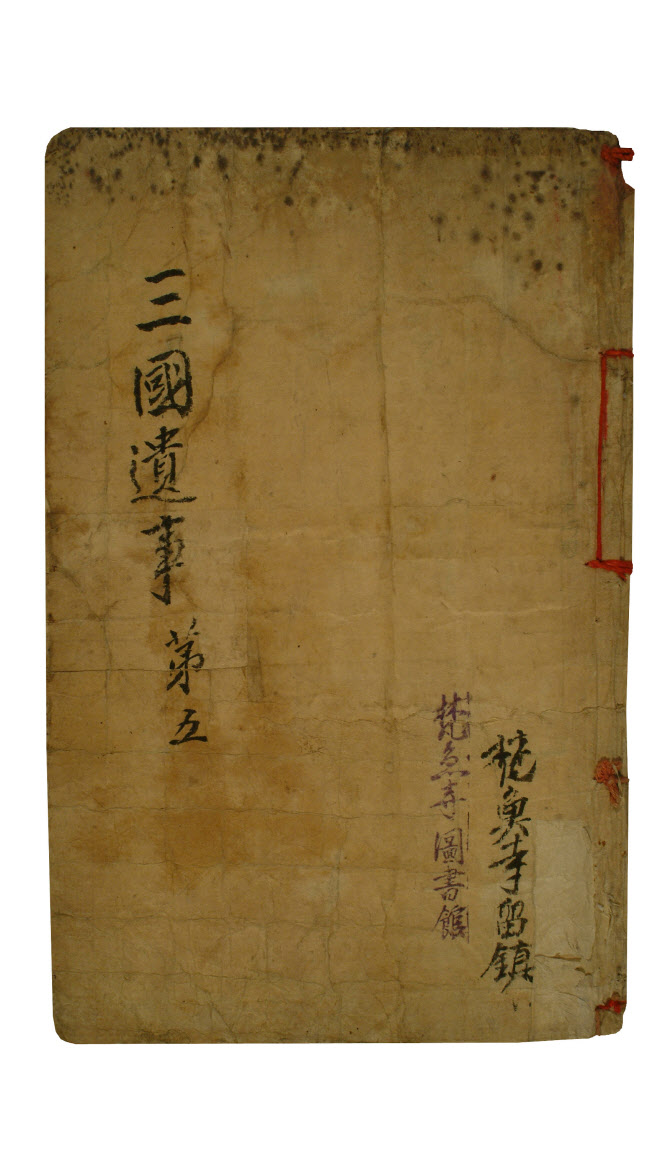 梵魚寺留鎮
梵魚寺圖書館
三國遺事 第五